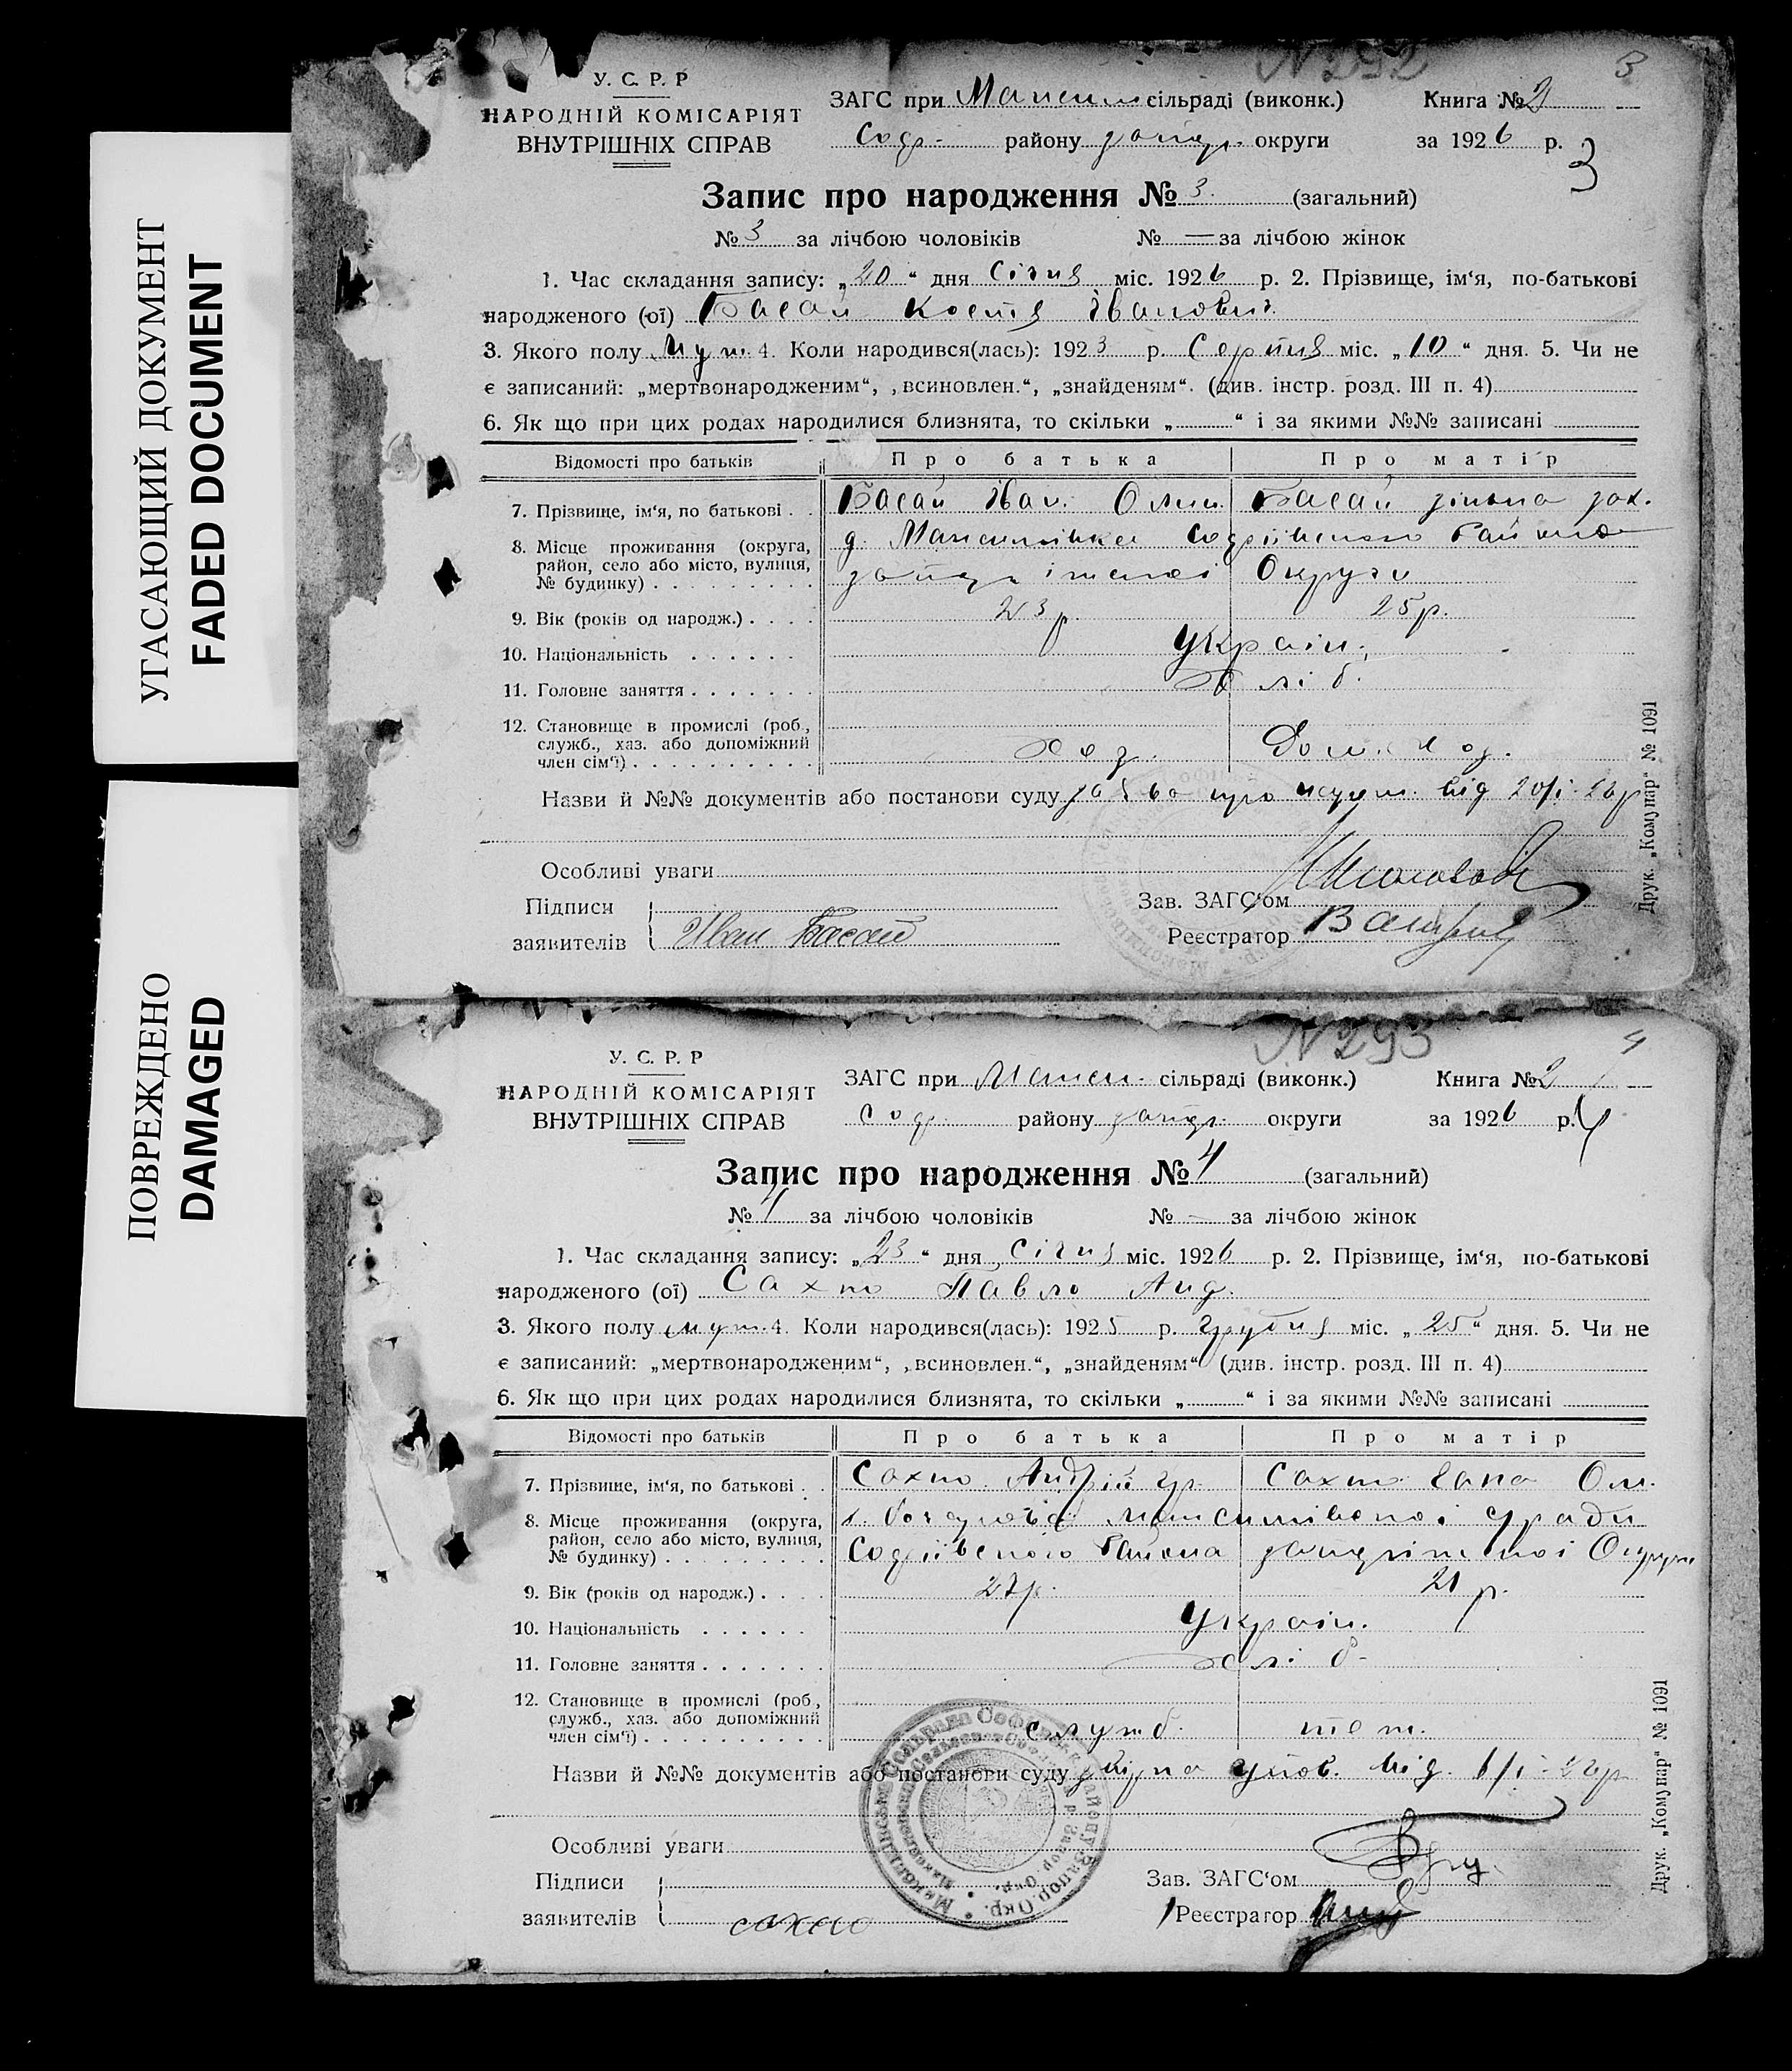 УГАСАЮЩИЙ ДОКУМЕНТ
FADED DOCUMENT
ПОВРЕЖДЕНО
DAMAGED
N 292
3
У. С. Р. Р
НАРОДНІЙ КОМІСАРІЯТ
ВНУТРІШНІХ СПРАВ
ЗАГС при сільраді (виконк.) Книга № 2
Соф. району округи за 1926 р.
3
Запис про народження № 3. (загальний)
№ 3 за лічбою чоловіків № — за лічбою жінок
1. Час складання запису: „20“ дня Січня міс. 1926 р. 2. Прізвище, ім‘я, по-батькові
народженого (ої) Басай Костя Іванович
3. Якого полу муж. 4. Коли народився(лась): 1923 р. Серпня міс. „10“ дня. 5. Чи не
є записаний: „мертвонародженим“, „всиновлен.“, „знайденям“. (див. інстр. розд. III п. 4)
6. Як що при цих родах народилися близнята, то скільки „ “ і за якими №№ записані
Відомості про батьків Про батька Про матір
7. Прізвище, ім‘я, по батькові . . Басай Іван. Басай
8. Місце проживання (округа,
район, село або місто, вулиця,
№ будинку) . . . . . . . . . .
Софіївського Району
Округи
9. Вік (років од народж.) . . . . 23 р. 25 р.
10. Національність . . . . . . Україн.
11. Головне заняття . . . . . . . Хліб.
12. Становище в промислі (роб.,
служб., хаз. або допоміжний
член сім‘ї) . . . . . . . . . . Хаз. Дом. хаз.
Назви й №№ документів або постанови суду про від 20/I-26 р
Особливі уваги
Підписи
заявителів Иван Басай
Зав. ЗАГС‘ом
Реєстратор
Друк. „Комунар“ № 1091
N 293
4
У. С. Р. Р
НАРОДНІЙ КОМІСАРІЯТ
ВНУТРІШНІХ СПРАВ
ЗАГС при сільраді (виконк.) Книга № 2
Соф. району округи за 1926 р.
4
Запис про народження № 4 (загальний)
№ 4 за лічбою чоловіків № — за лічбою жінок
1. Час складання запису: „23“ дня Січня міс. 1926 р. 2. Прізвище, ім‘я, по-батькові
народженого (ої) Сахно Павло Анд.
3. Якого полу муж. 4. Коли народився(лась): 1925 р. Грудня міс. „25“ дня. 5. Чи не
є записаний: „мертвонародженим“, „всиновлен.“, „знайденям“ (див. інстр. розд. III п. 4)
6. Як що при цих родах народилися близнята, то скільки „ “ і за якими №№ записані
Відомості про батьків Про батька Про матір
7. Прізвище, ім‘я, по батькові . . Сахно Андрій гр. Сахно Ом.
8. Місце проживання (округа,
район, село або місто, вулиця,
№ будинку) . . . . . . . . . .
с/ради
Софіївського Району Округи
9. Вік (років од народж.) . . . . 27 р. 21 р.
10. Національність . . . . . . Україн.
11. Головне заняття . . . . . . . Хліб.
12. Становище в промислі (роб.,
служб., хаз. або допоміжний
член сім‘ї) . . . . . . . . . . служб. теж.
Назви й №№ документів або постанови суду від
Особливі уваги
Підписи
заявителів сахно
Зав. ЗАГС‘ом
Реєстратор
Друк. „Комунар“ № 1091